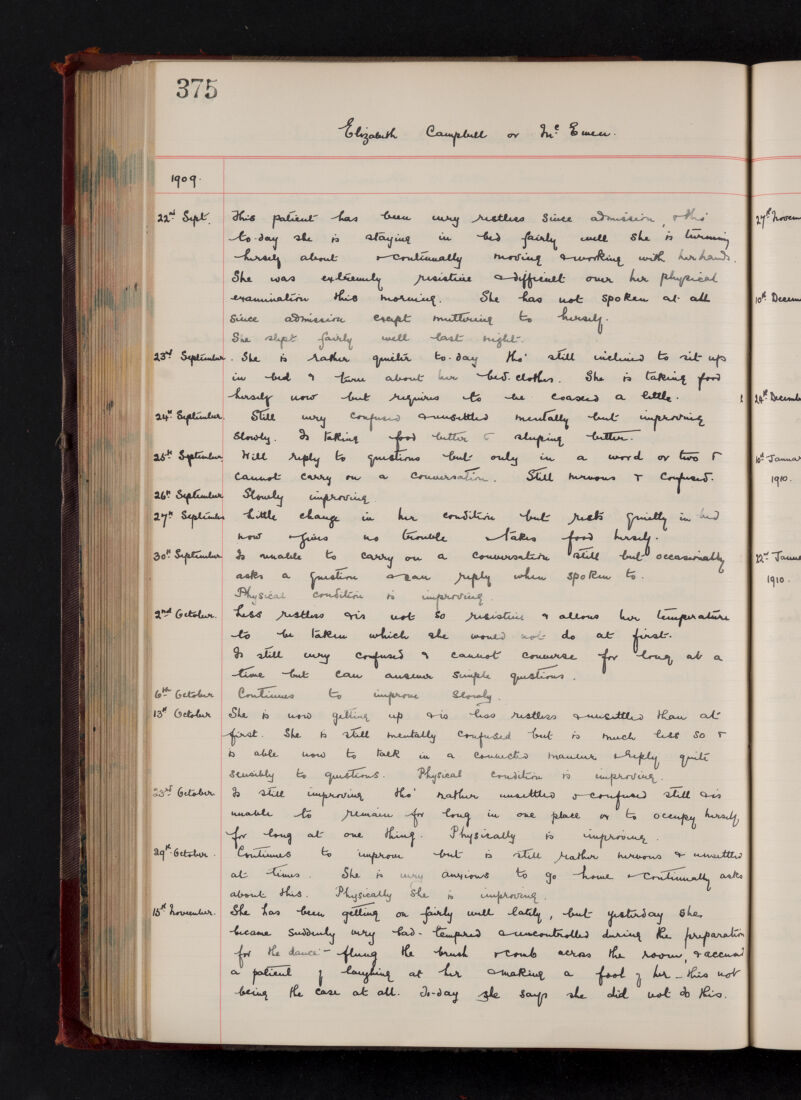 375
Elizabeth Campbell or McEwen.
1909.
22nd Sept. This patient has been very restless since admission, & tho'
to-day she is staying in bed fairly well she is turning
herself about & continually moving & working with her hands.
She was extremely resistive & difficult over her physical
examination this morning. She has not spoken at all
since admission except muttering to herself.
She slept fairly well last night.
23rd September. She is rather quieter to-day tho' still inclined to sit up
in bed & turn about her bed-clothes. She is taking food
herself now but requires to be coaxed a little.
24th September. Still very confused & unsettled mentally but improving
slowly. Is taking food better & sleeping better.
25th September Will reply to questions but only in a word or two &
cannot carry on a conversation. Still nervous & confused.
26th September Slowly improving.
27th September Little change in her condition but rests quietly in bed
now & gives no trouble & takes food herself.
30th September Is unable to carry on a conversation still but occasionally
asks a question & can reply when spoken to.
Physical condition is improving.
2nd October. Less restless & is not so resistive & allows her temperature
to be taken which she would not do at first.
Is still very confused & cannot converse for long at a
time but can answer simple questions.
6th October Continues to improve slowly.
13th October She is now getting up & is less restless & unsettled than at
first. She is still mentally confused but is much less so &
is able now to talk in a connected manner & reply quite
sensibly to questions. Physical condition is improving.
23rd October Is still improving tho' rather unsettled & confused still & is
unable to remain for long in one place or to occupy herself
for long at one thing. Physically is improving.
29th October. Continues to improve but is still rather nervous & unsettled
at times. She is very anxious to go home & continually asks
about this. Physically she is improving.
15th November. She has been getting on fairly well lately, but yesterday she
became suddenly very bad-tempered & uncontrolled during the preparation
for the dance - flung the brush & comb across the room, & accused
a patient of laughing at her & making a fool of her - this not
being the case at all. To-day she says she did not do this.
27th Novem
10th Decem
24th Decemb
10th Januar
1910.
22nd Janua
1910.